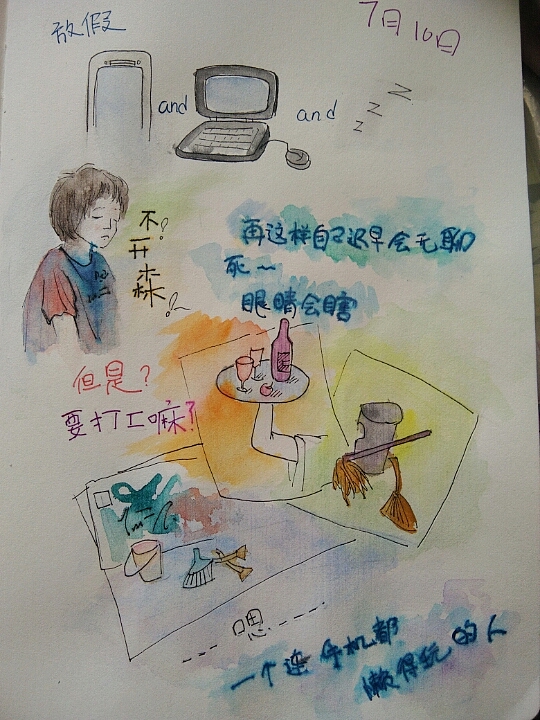 放假
7月10日
and
and
z z z
不
开
森
再这样自己迟早会无聊
死～
眼睛会瞎
但是?
要打工嘛?
---嗯---
一个连手机都
懒得玩的人